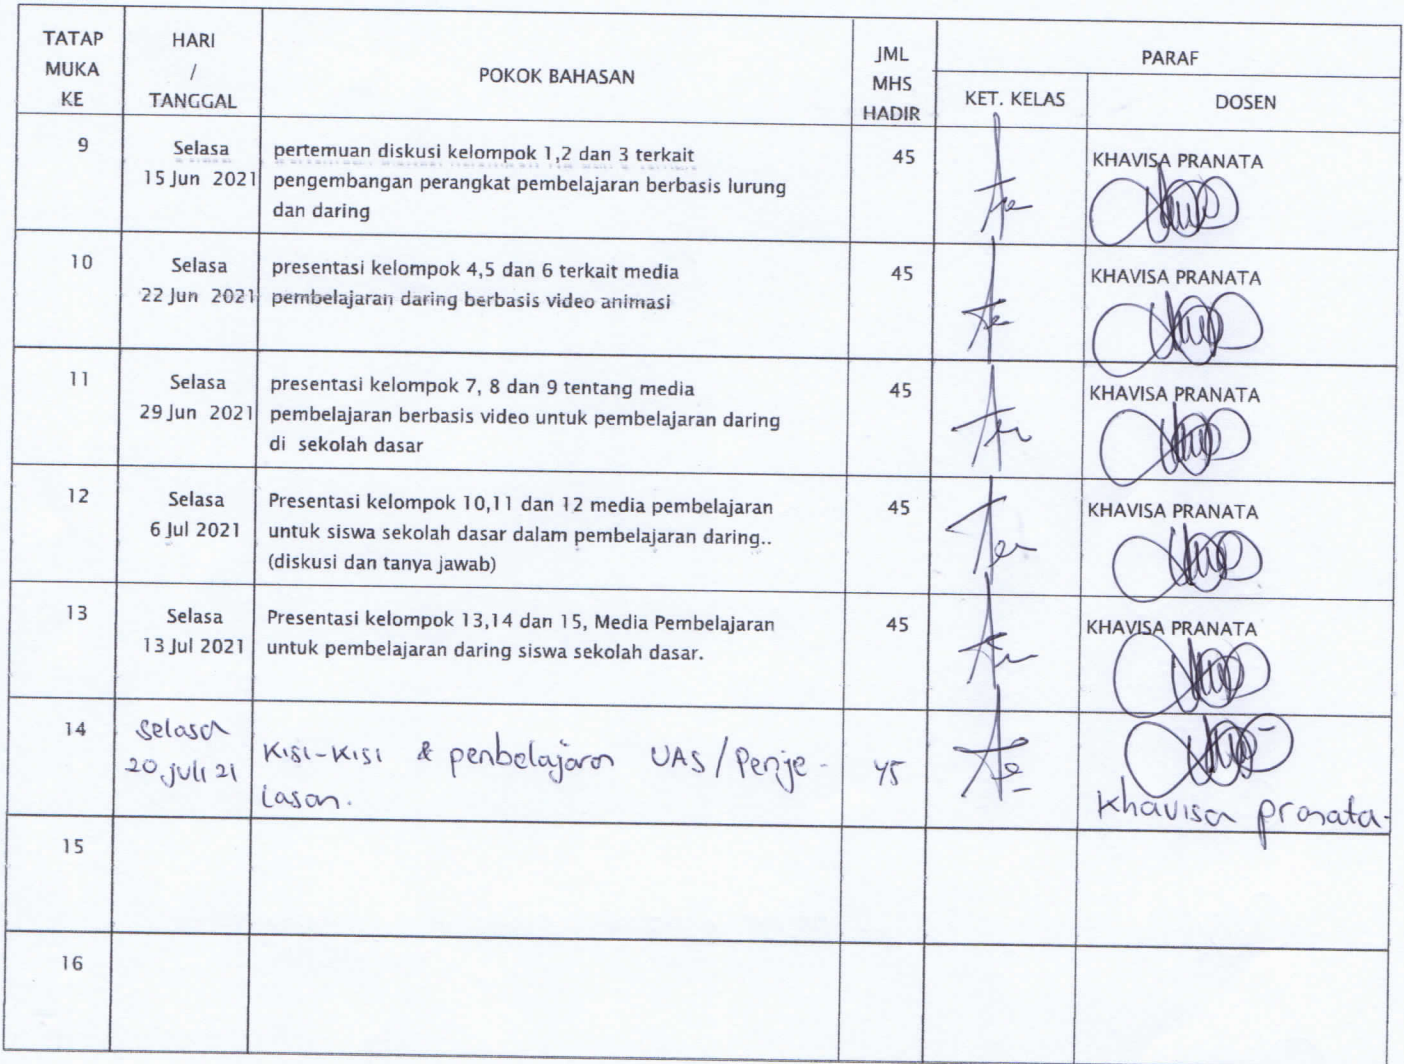 TATAP MUKA KE
HARI / TANGGAL
POKOK BAHASAN
JML MHS HADIR
PARAF
KET. KELAS
DOSEN
9
Selasa
15 Jun 2021
pertemuan diskusi kelompok 1,2 dan 3 terkait
pengembangan perangkat pembelajaran berbasis lurung
dan daring
45
KHAVISA PRANATA
10
Selasa
22 Jun 2021
presentasi kelompok 4,5 dan 6 terkait media
pembelajaran daring berbasis video animasi
45
KHAVISA PRANATA
11
Selasa
29 Jun 2021
presentasi kelompok 7, 8 dan 9 tentang media
pembelajaran berbasis video untuk pembelajaran daring
di sekolah dasar
45
KHAVISA PRANATA
12
Selasa
6 Jul 2021
Presentasi kelompok 10,11 dan 12 media pembelajaran
untuk siswa sekolah dasar dalam pembelajaran daring..
(diskusi dan tanya jawab)
45
KHAVISA PRANATA
13
Selasa
13 Jul 2021
Presentasi kelompok 13,14 dan 15, Media Pembelajaran
untuk pembelajaran daring siswa sekolah dasar.
45
KHAVISA PRANATA
14
Selasa
20 Juli 21
Kisi-Kisi & penbelajaran UAS/Penje-
lasan.
45
Khavisa pranata
15
16